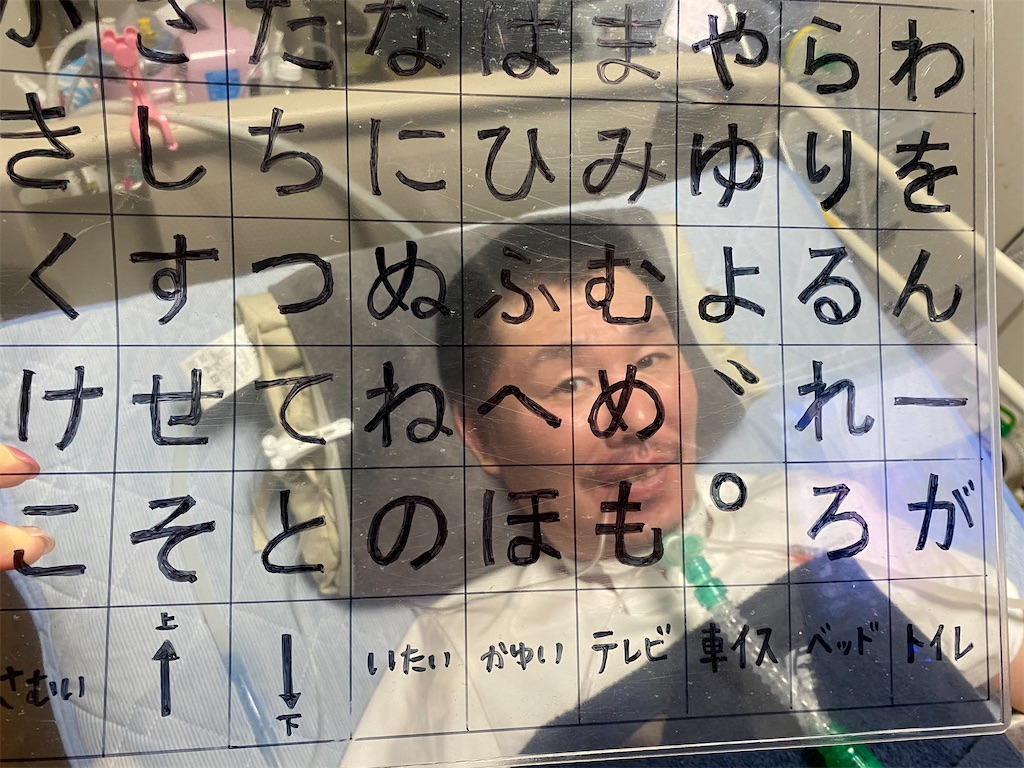 か さ た な は ま や ら わ
き し ち に ひ み ゆ り を
く す つ ぬ ふ む よ る ん
け せ て ね へ め ゛ れ ー
こ そ と の ほ も ゜ ろ が
さむい 上↑ ↓下 いたい かゆい テレビ 車イス ベッド トイレ